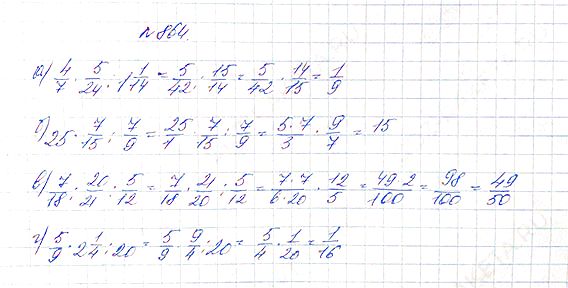 № 864.
а) 4/7 · 5/24 : 1 1/14 = 5/42 : 15/14 = 5/42 · 14/15 = 1/9
б) 25 · 7/15 : 7/9 = 25/1 · 7/15 : 7/9 = 5·7/3 · 9/7 = 15
в) 7/18 : 20/21 : 5/12 = 7/18 · 21/20 : 5/12 = 7·7/6·20 · 12/5 = 49·2/100 = 98/100 = 49/50
г) 5/9 · 2 1/4 : 20 = 5/9 · 9/4 : 20 = 5/4 · 1/20 = 1/16